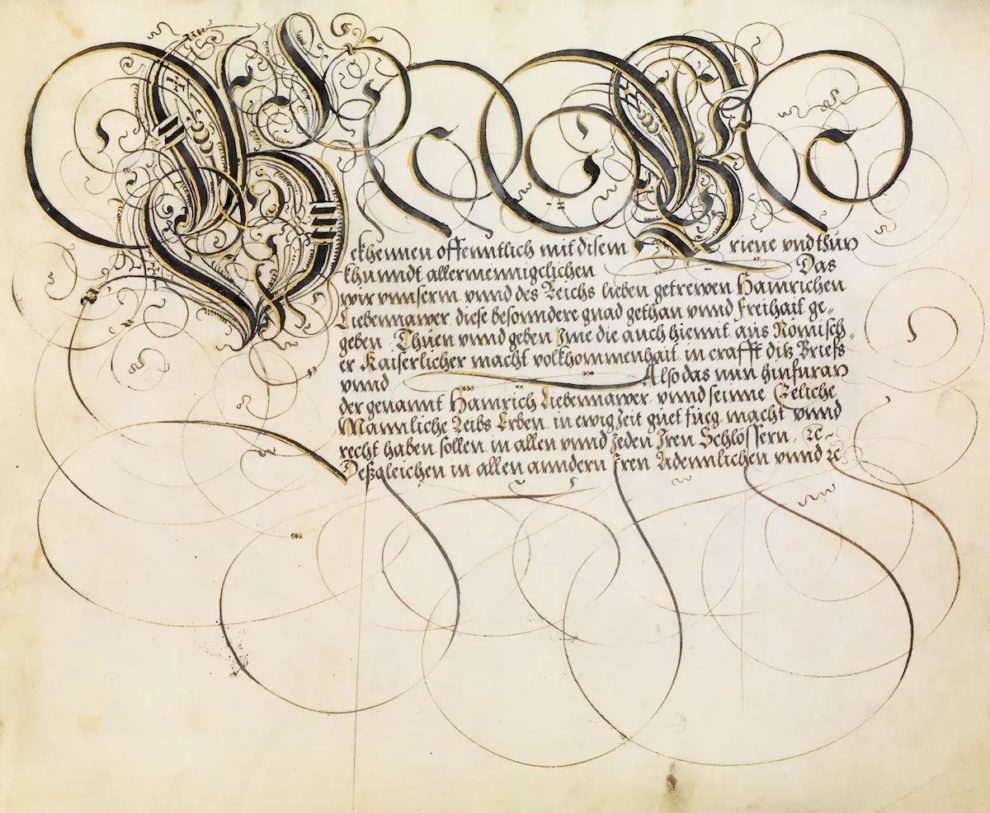 Bekhennen offenntlich mit disem Brieve vnd thun
khunndt allermennigclichen Das
wir vnnserm vnnd des Reichs lieben getrewen Hainrichen
Liebennawer, diese besonndere gnad gethan vnnd Freihait ge„
geben Thuen vnnd geben Ime die auch hiemit aus Römisch„
er Kaiserlicher macht volkhommenhait in crafft ditz Brieffs
vnnd Also das nun hinfuran
der genannt Hainrich Liebennawer vnnd seinne Eeliche
Mannliche Leibs Erben in ewig Zeit guet fueg macht vnnd
recht haben sollen in allen vnnd Jeden Iren Schlossern
Deßgleichen in allen anndern Iren Adennlichen vnnd